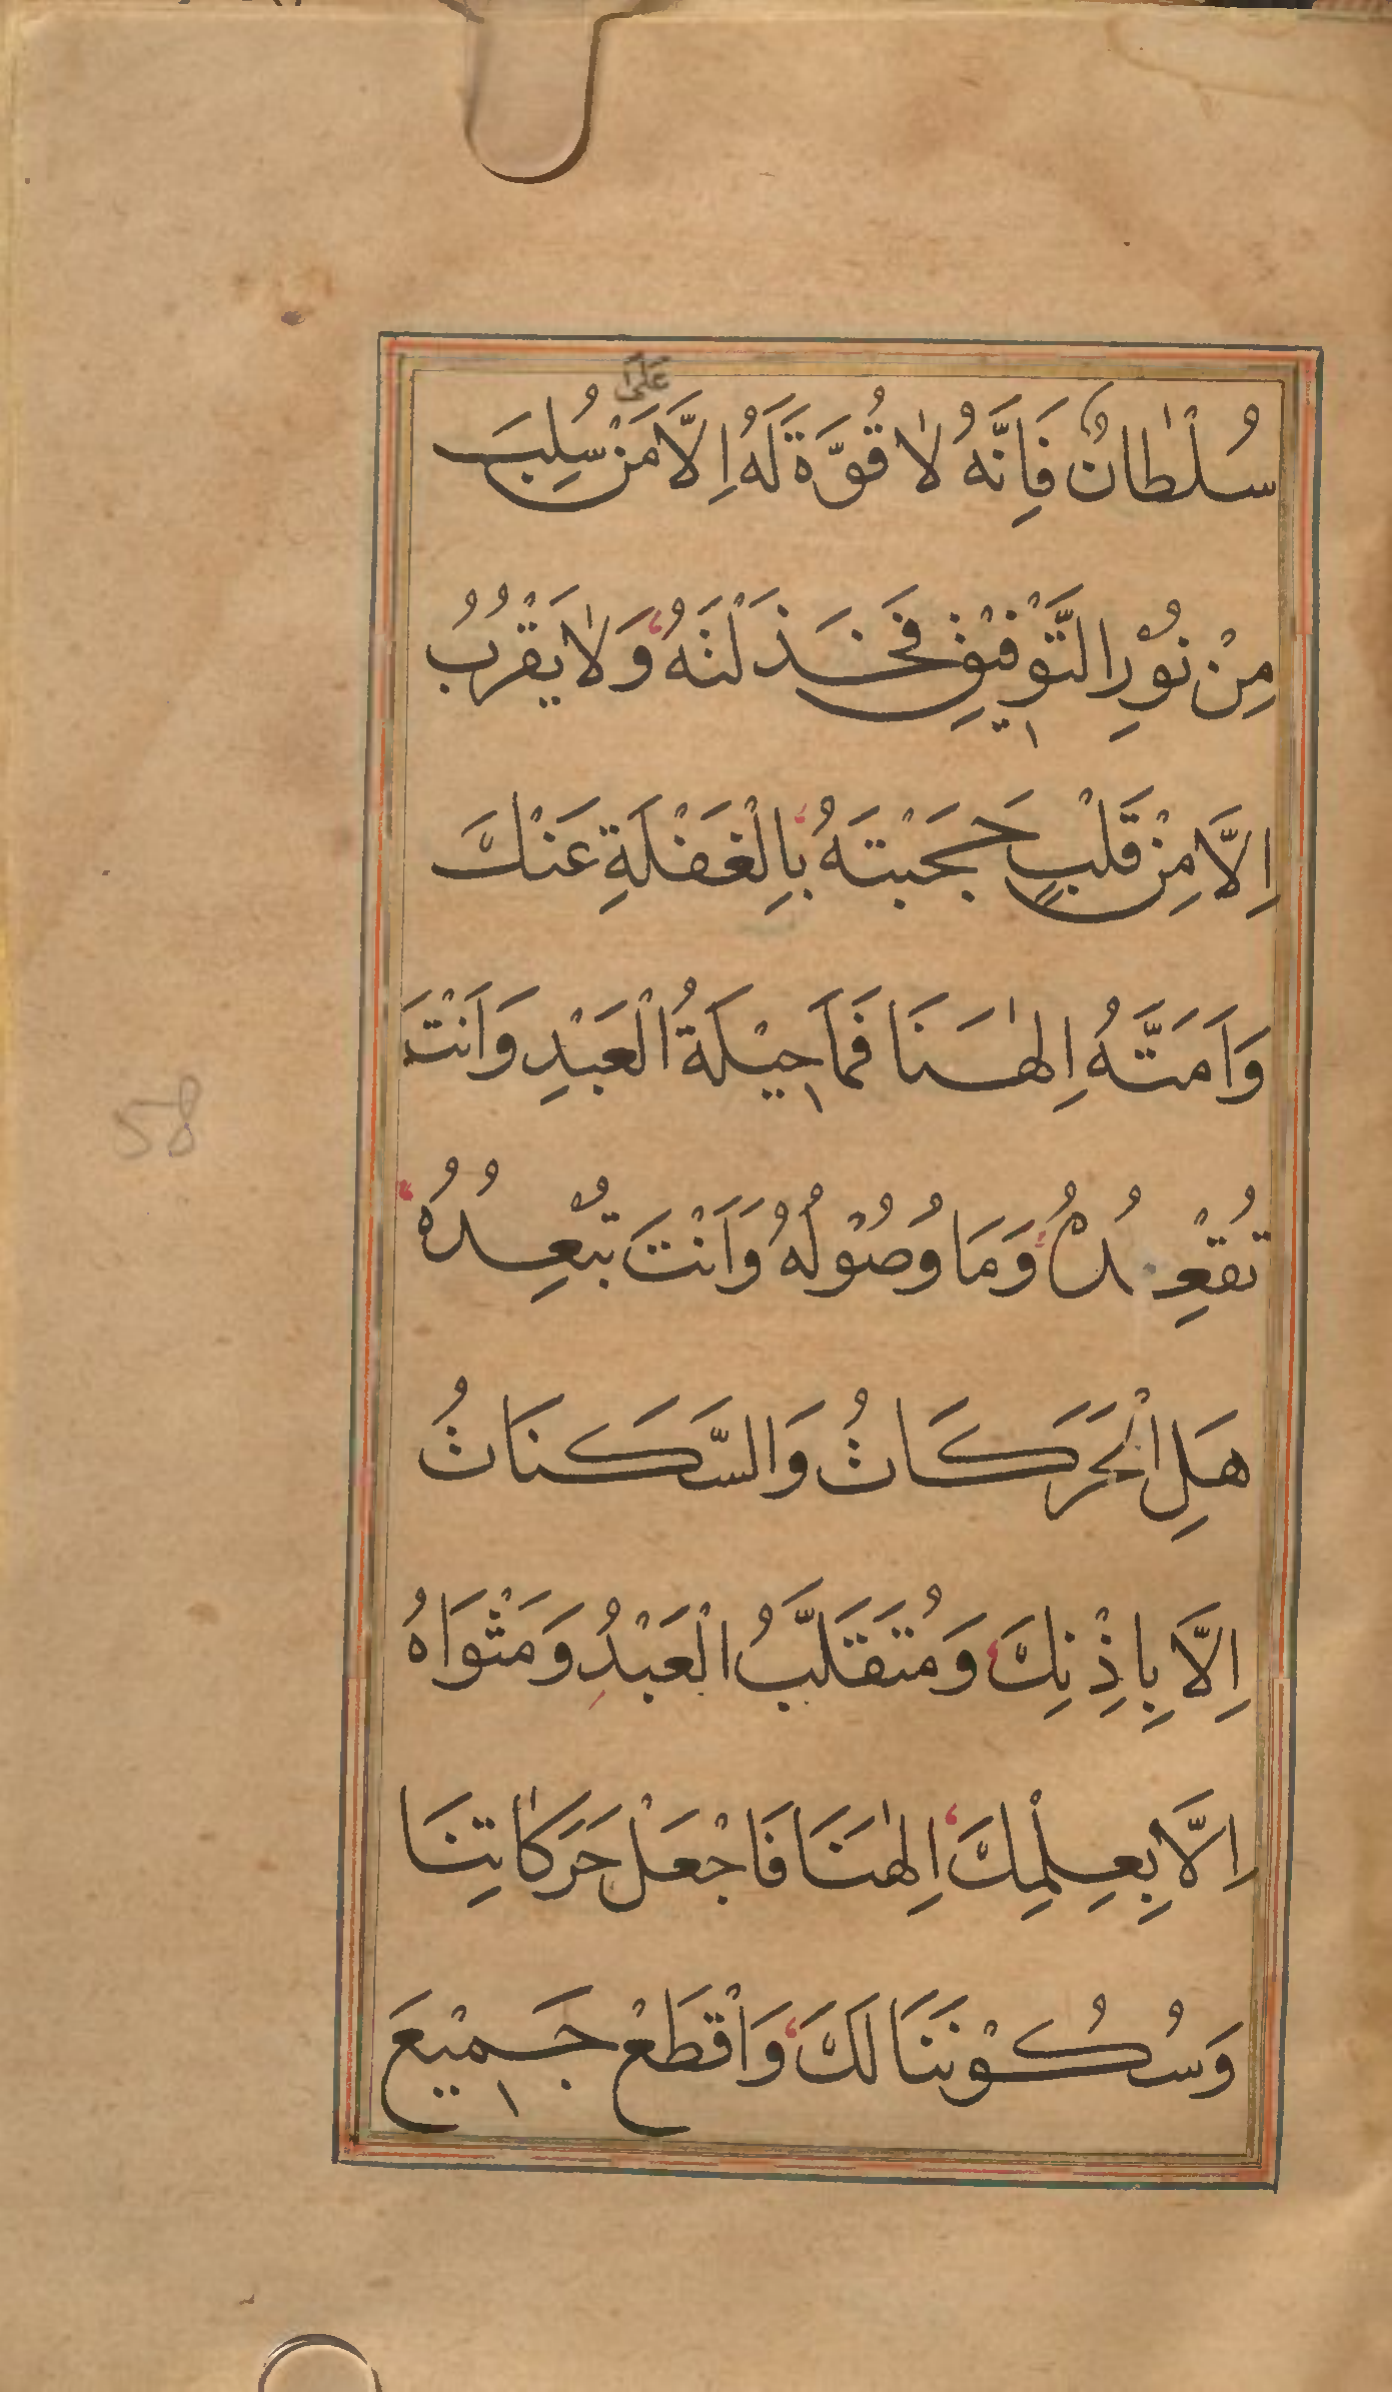 عَلٰى
سُلْطٰانٌ فَاِنَّهُ لٰا قُوَّةَ لَهُ اِلَّا مَنْ سُلِبَ
مِنْ نُوْرِ التَّوْفِيْقِ فَخَذَلْنَهُ وَلٰا يَقْرُبُ
اِلَّا مِنْ قَلْبٍ حَجَبْتَهُ بِالْغَفْلَةِ عَنْكَ
وَاَمَتَّهُ اِلٰهَنَا فَمَا حِيْلَةُ الْعَبْدِ وَاَنْتَ
تُقْعِدُهُ وَمَا وُصُوْلُهُ وَاَنْتَ تُبْعِدُهُ
هَلِ الْحَرَكَاتُ وَالسَّكَنَاتُ
اِلَّا بِاِذْنِكَ وَمُتَقَلَّبُ الْعَبْدُ وَمَثْوَاهُ
اِلَّا بِعِلْمِكَ اِلٰهَنَا فَاجْعَلْ حَرَكٰاتِنَا
وَسُكُوْنَنَا لَكَ وَاقْطَعْ جَمِيْعَ
58